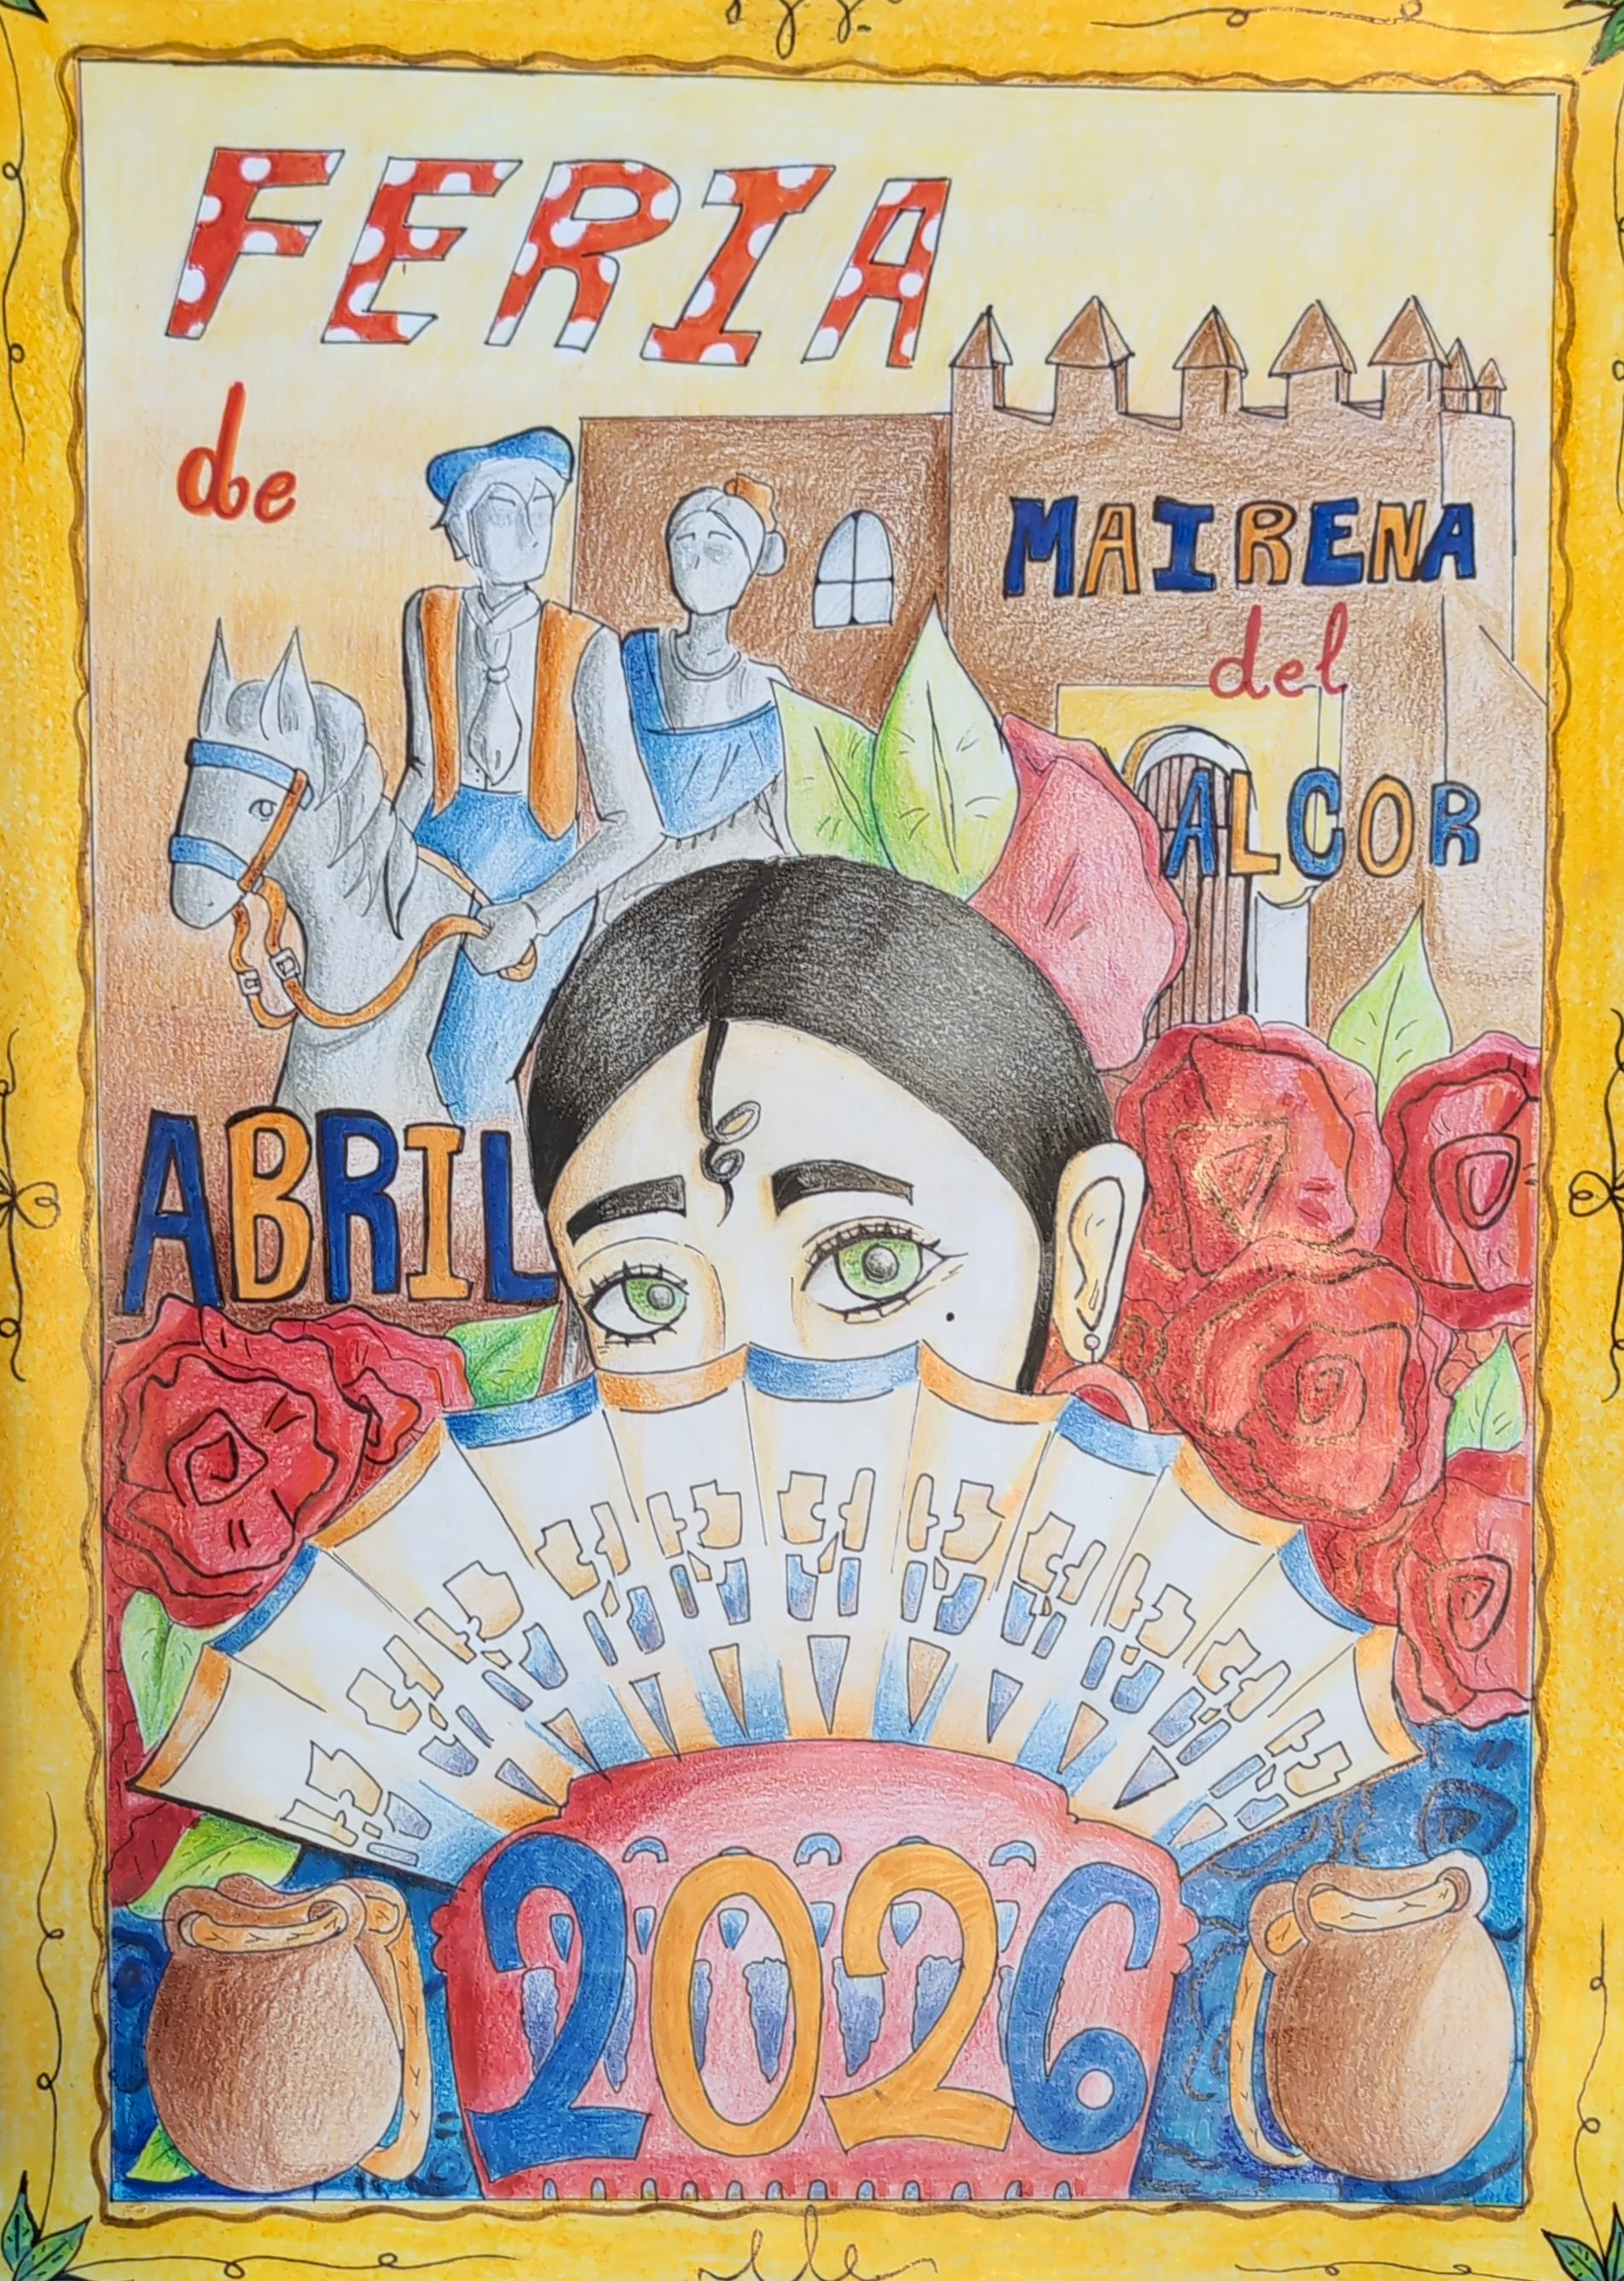 FERIA
de
MAIRENA
del
ALCOR
ABRIL
2026